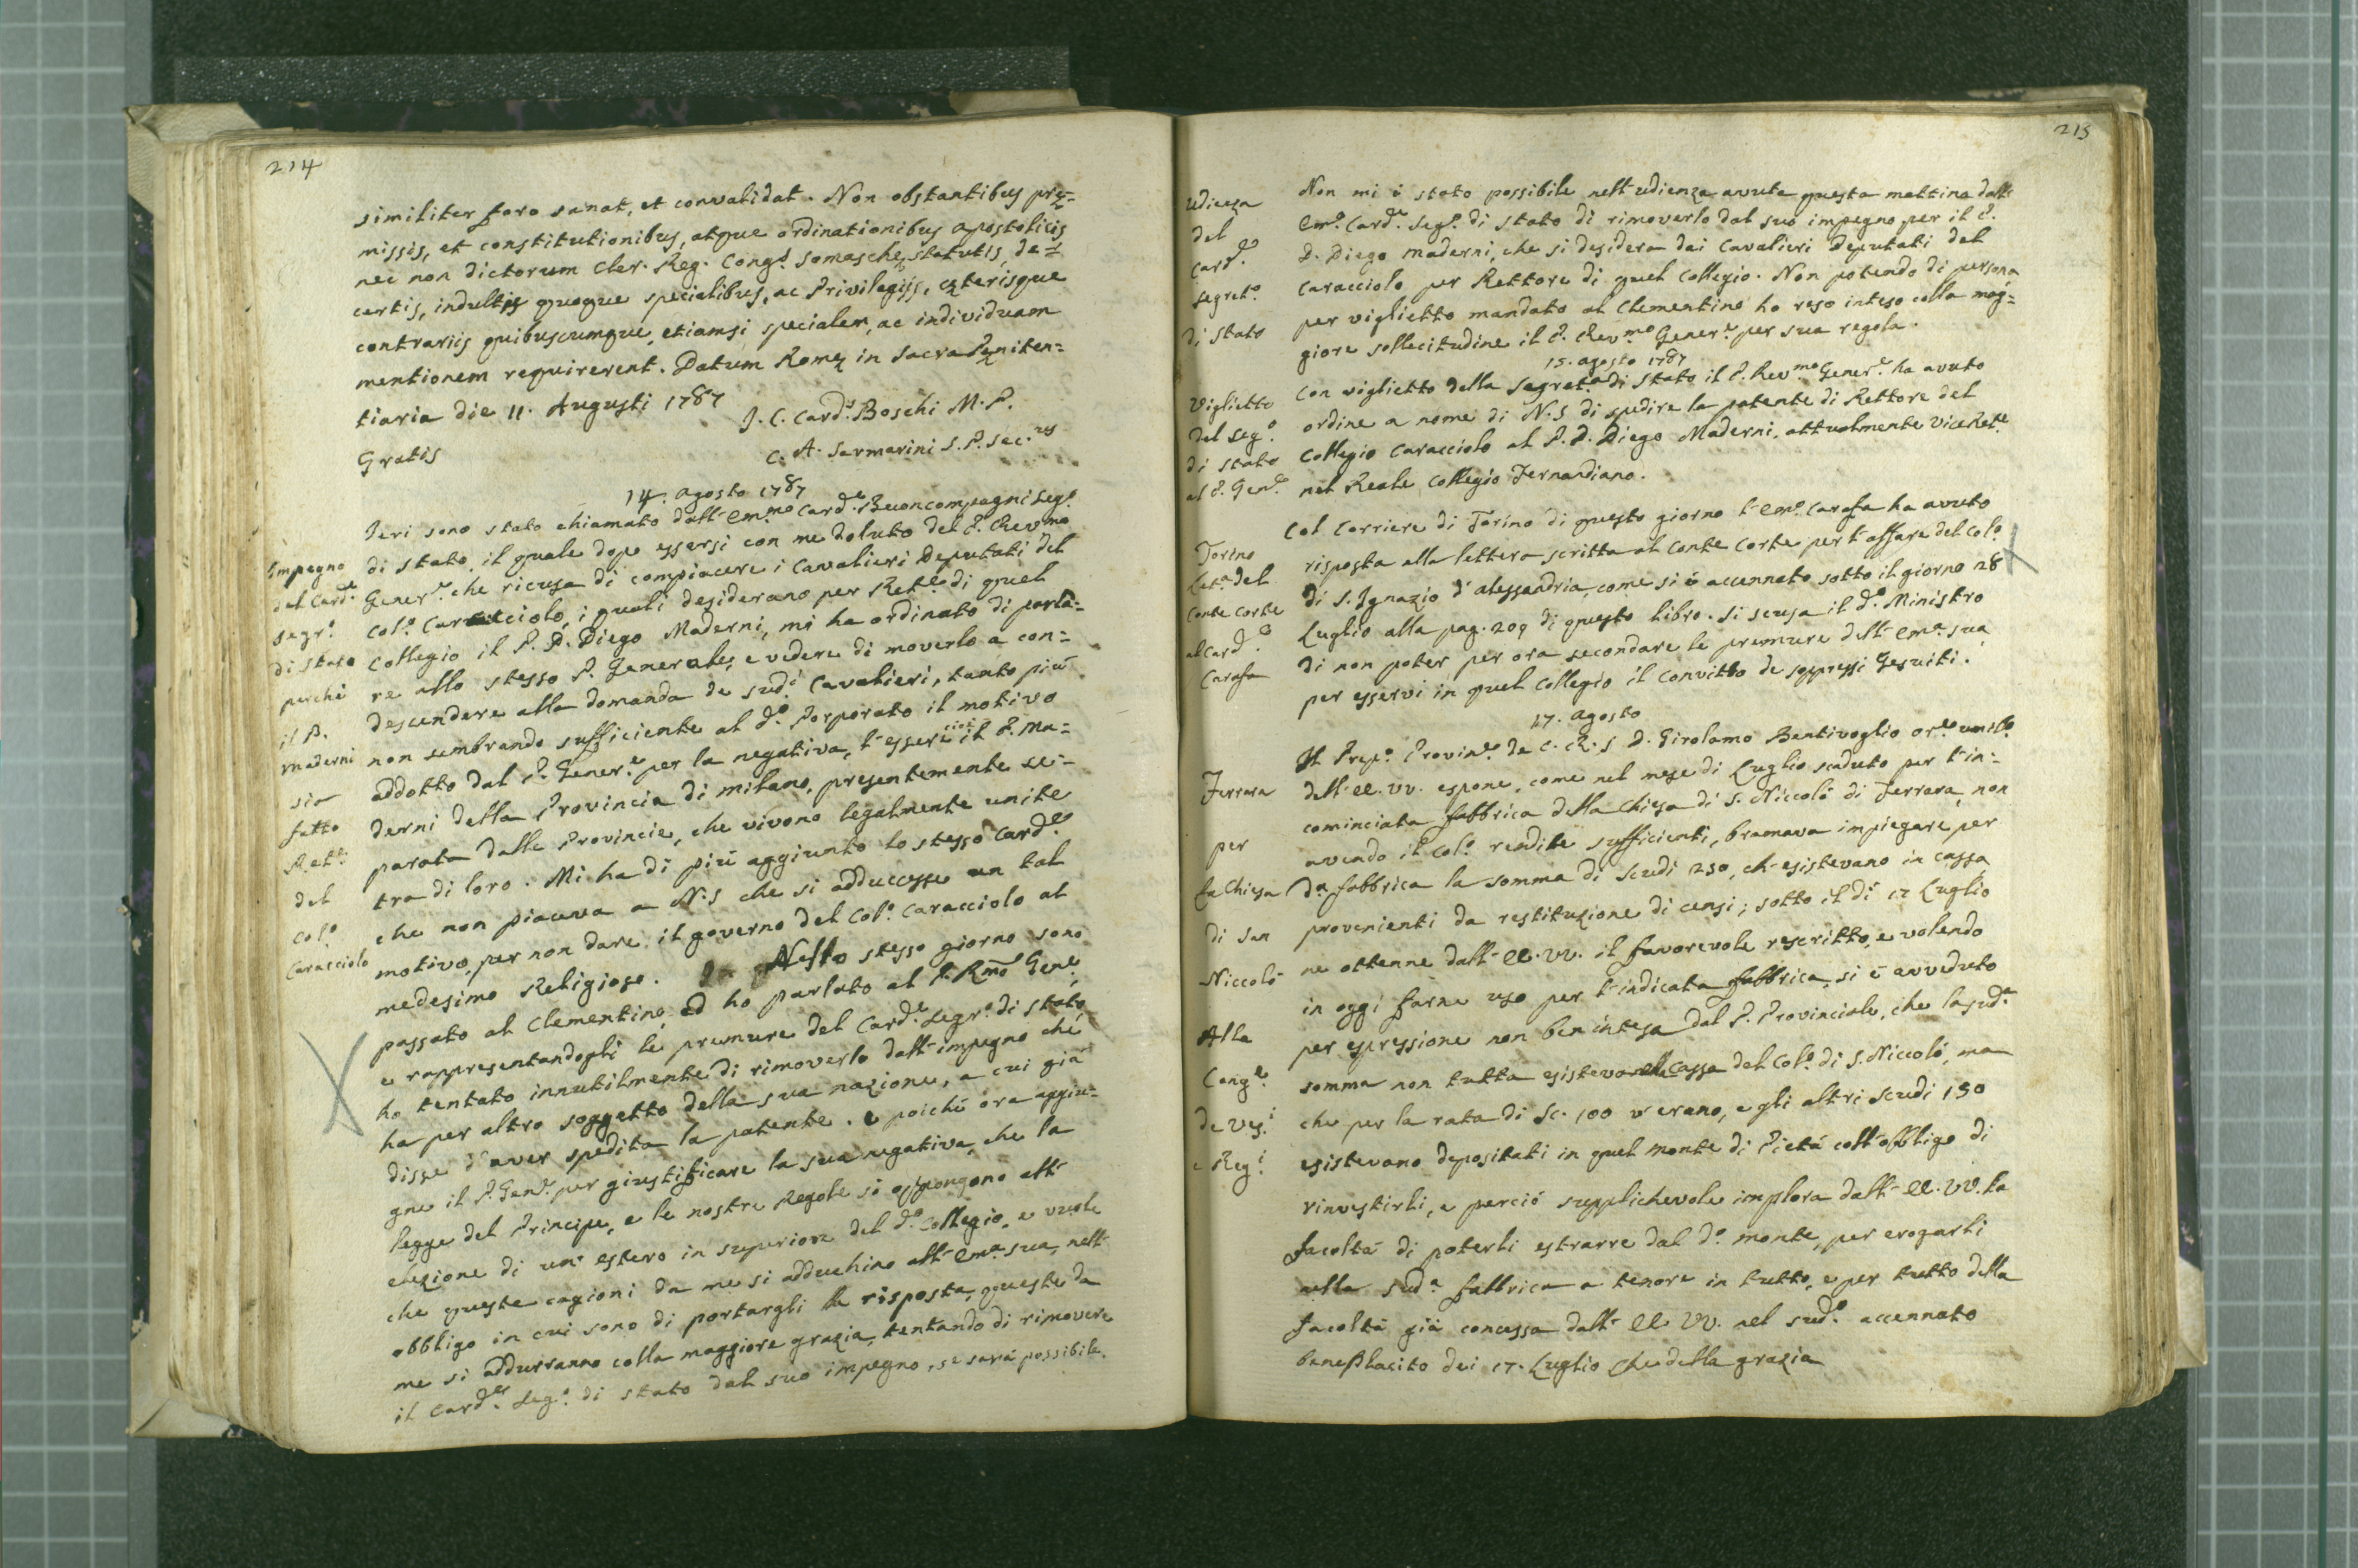 214
similiter foro sanat, et convalidat. Non obstantibus prę=
missis, et constitutionibus, atque ordinationibus apostolicis
nec non dictorum Cler. Reg. Cong.s Somaschę statutis, de=
cretis, indultis quoque specialibus, ac Privilegijs, cęterisque
contrariis quibuscumque, etiamsi specialem, ac individuam
mentionem requirerent. Datum Romę in Sacra Pęniten=
tiaria die 11. Augusti 1787
J. C. Card.s Boschi M. P.
Gratis
C. A. Sarmarini S. P. Sec.rus
14. Agosto 1787
Jeri sono stato chiamato dall'Em.mo Card.e Buoncompagni Seg.o
di Stato, il quale dopo essersi con me doluto del P. Rev.mo
Gener.e che ricusa di compiacere i Cavalieri Deputati del
Col.o Caracciolo, i quali desiderano per Ret.e di quel
Collegio il P. D. Diego Maderni, mi ha ordinato di parla=
re allo stesso P. Generale, e vedere di moverlo a con=
descendere alla domanda de sud.i Cavalieri, tanto più
non sembrando sufficiente al d.o Porporato il motivo
addotto dal P. Gener.e per la negativa, l'essere cioè il P. Ma=
derni della Provincia di Milano, presentemente se=
parata dalle Provincie, che vivono legalmente unite
tra di loro. Mi ha di più aggiunto lo stesso Card.e
che non piaceva a N.S che si adducesse un tal
motivo, per non dare il governo del Col.o Caracciolo al
medesimo Religioso. Nello stesso giorno sono
passato al Clementino, ed ho parlato al P. Rmo Gen.e
e rappresentandogli le premure del Card.e Segr.o di Stato,
ho tentato innutilmente di rimoverlo dall'impegno che
ha per altro soggetto della sua nazione, a cui già
disse d'aver spedita la patente. e poichè ora aggiu=
gne il P. Gen.e per giustificare la sua negativa, che la
legge del Principe, e le nostre Regole si oppongono all'
elezione di un'estero in superiore del d.o Collegio, e vuole
che queste cagioni da me si adduchino all'Em.a sua, nell'
obbligo in cui sono di portargli la risposta, queste da
me si addurranno colla maggiore grazia, tentando di rimovere
il Card.e Seg.o di Stato dal suo impegno, se sarà possibile.
Impegno
del Card.e
Segr.o
di Stato
perchè
il P.
Maderni
sia
fatto
Rett.e
del
Col.o
Caracciolo
215
Non mi è stato possibile nell'udienza avuta questa mattina dall'
Em.o Card.e Seg.o di Stato di rimoverlo dal suo impegno per il P.
D. Diego Maderni, che si desidera dai Cavalieri Deputati del
Caracciolo per Rettore di quel Collegio. Non potendo di persona
per viglietto mandato al Clementino ho reso inteso colla mag=
giore sollecitudine il P. Rev.mo Gener.e per sua regola.
15. Agosto 1787
Con viglietto della Segret.a di Stato il P. Rev.mo Gener.e ha avuto
ordine a nome di N.S di spedire la patente di Rettore del
Collegio Caracciolo al P. D. Diego Maderni, attualmente ViceRet.e
nel Reale Collegio Fernandiano.
Col Corriere di Torino di questo giorno l'Em.o Carafa ha avuto
risposta alla lettera scritta al Conte Corte per l'affare del Col.o
di S. Ignazio d'Alessandria, come si è accennato sotto il giorno 28
Luglio alla pag. 209 di questo libro. Si scusa il d.o Ministro
di non poter per ora secondare le premure dell'Em.a sua
per esservi in quel Collegio il Convitto de soppressi Gesuiti.
17. Agosto
Il Prep.o Provin.e de C. R. S D. Girolamo Bentivoglio or.e umil.o
dell'EE. VV. espone, come nel mese di Luglio scaduto per l'in=
cominciata fabbrica della Chiesa di S. Niccolò di Ferrara, non
avendo il Col.o rendite sufficienti, bramava impiegare per
d.a fabbrica la somma di Scudi 250, ch'esistevano in cassa
provenienti da restituzione di censi; sotto il dì 17 Luglio
ne ottenne dall'EE. VV. il favorevole rescritto, e volendo
in oggi farne uso per l'indicata fabbrica, si è avveduto
per espressione non ben intesa dal P. Provinciale, che la sud.a
somma non tutta esisteva nella Cassa del Col.o di S. Niccolò, ma
che per la rata di Sc. 100 v'erano, e gli altri scudi 150
esistevano depositati in quel Monte di Pietà coll'obbligo di
rinvestirli, e perciò supplichevole implora dall'EE. VV. la
facoltà di poterli estrarre dal d.o monte, per erogarli
nella sud.a fabbrica a tenore in tutto, e per tutto della
facoltà già concessa dall'EE VV. nel sud.o accennato
beneplacito dei 17. Luglio Che della grazia
Udienza
del
Card.e
Segret.o
di Stato
Viglietto
del Seg.o
di Stato
al P. Gen.e
Torino
Let.a del
Conte Corte
al Card.e
Carafa
Ferrara
per
la Chiesa
di San
Niccolò
Alla
Cong.e
de Ves.i
e Reg.i